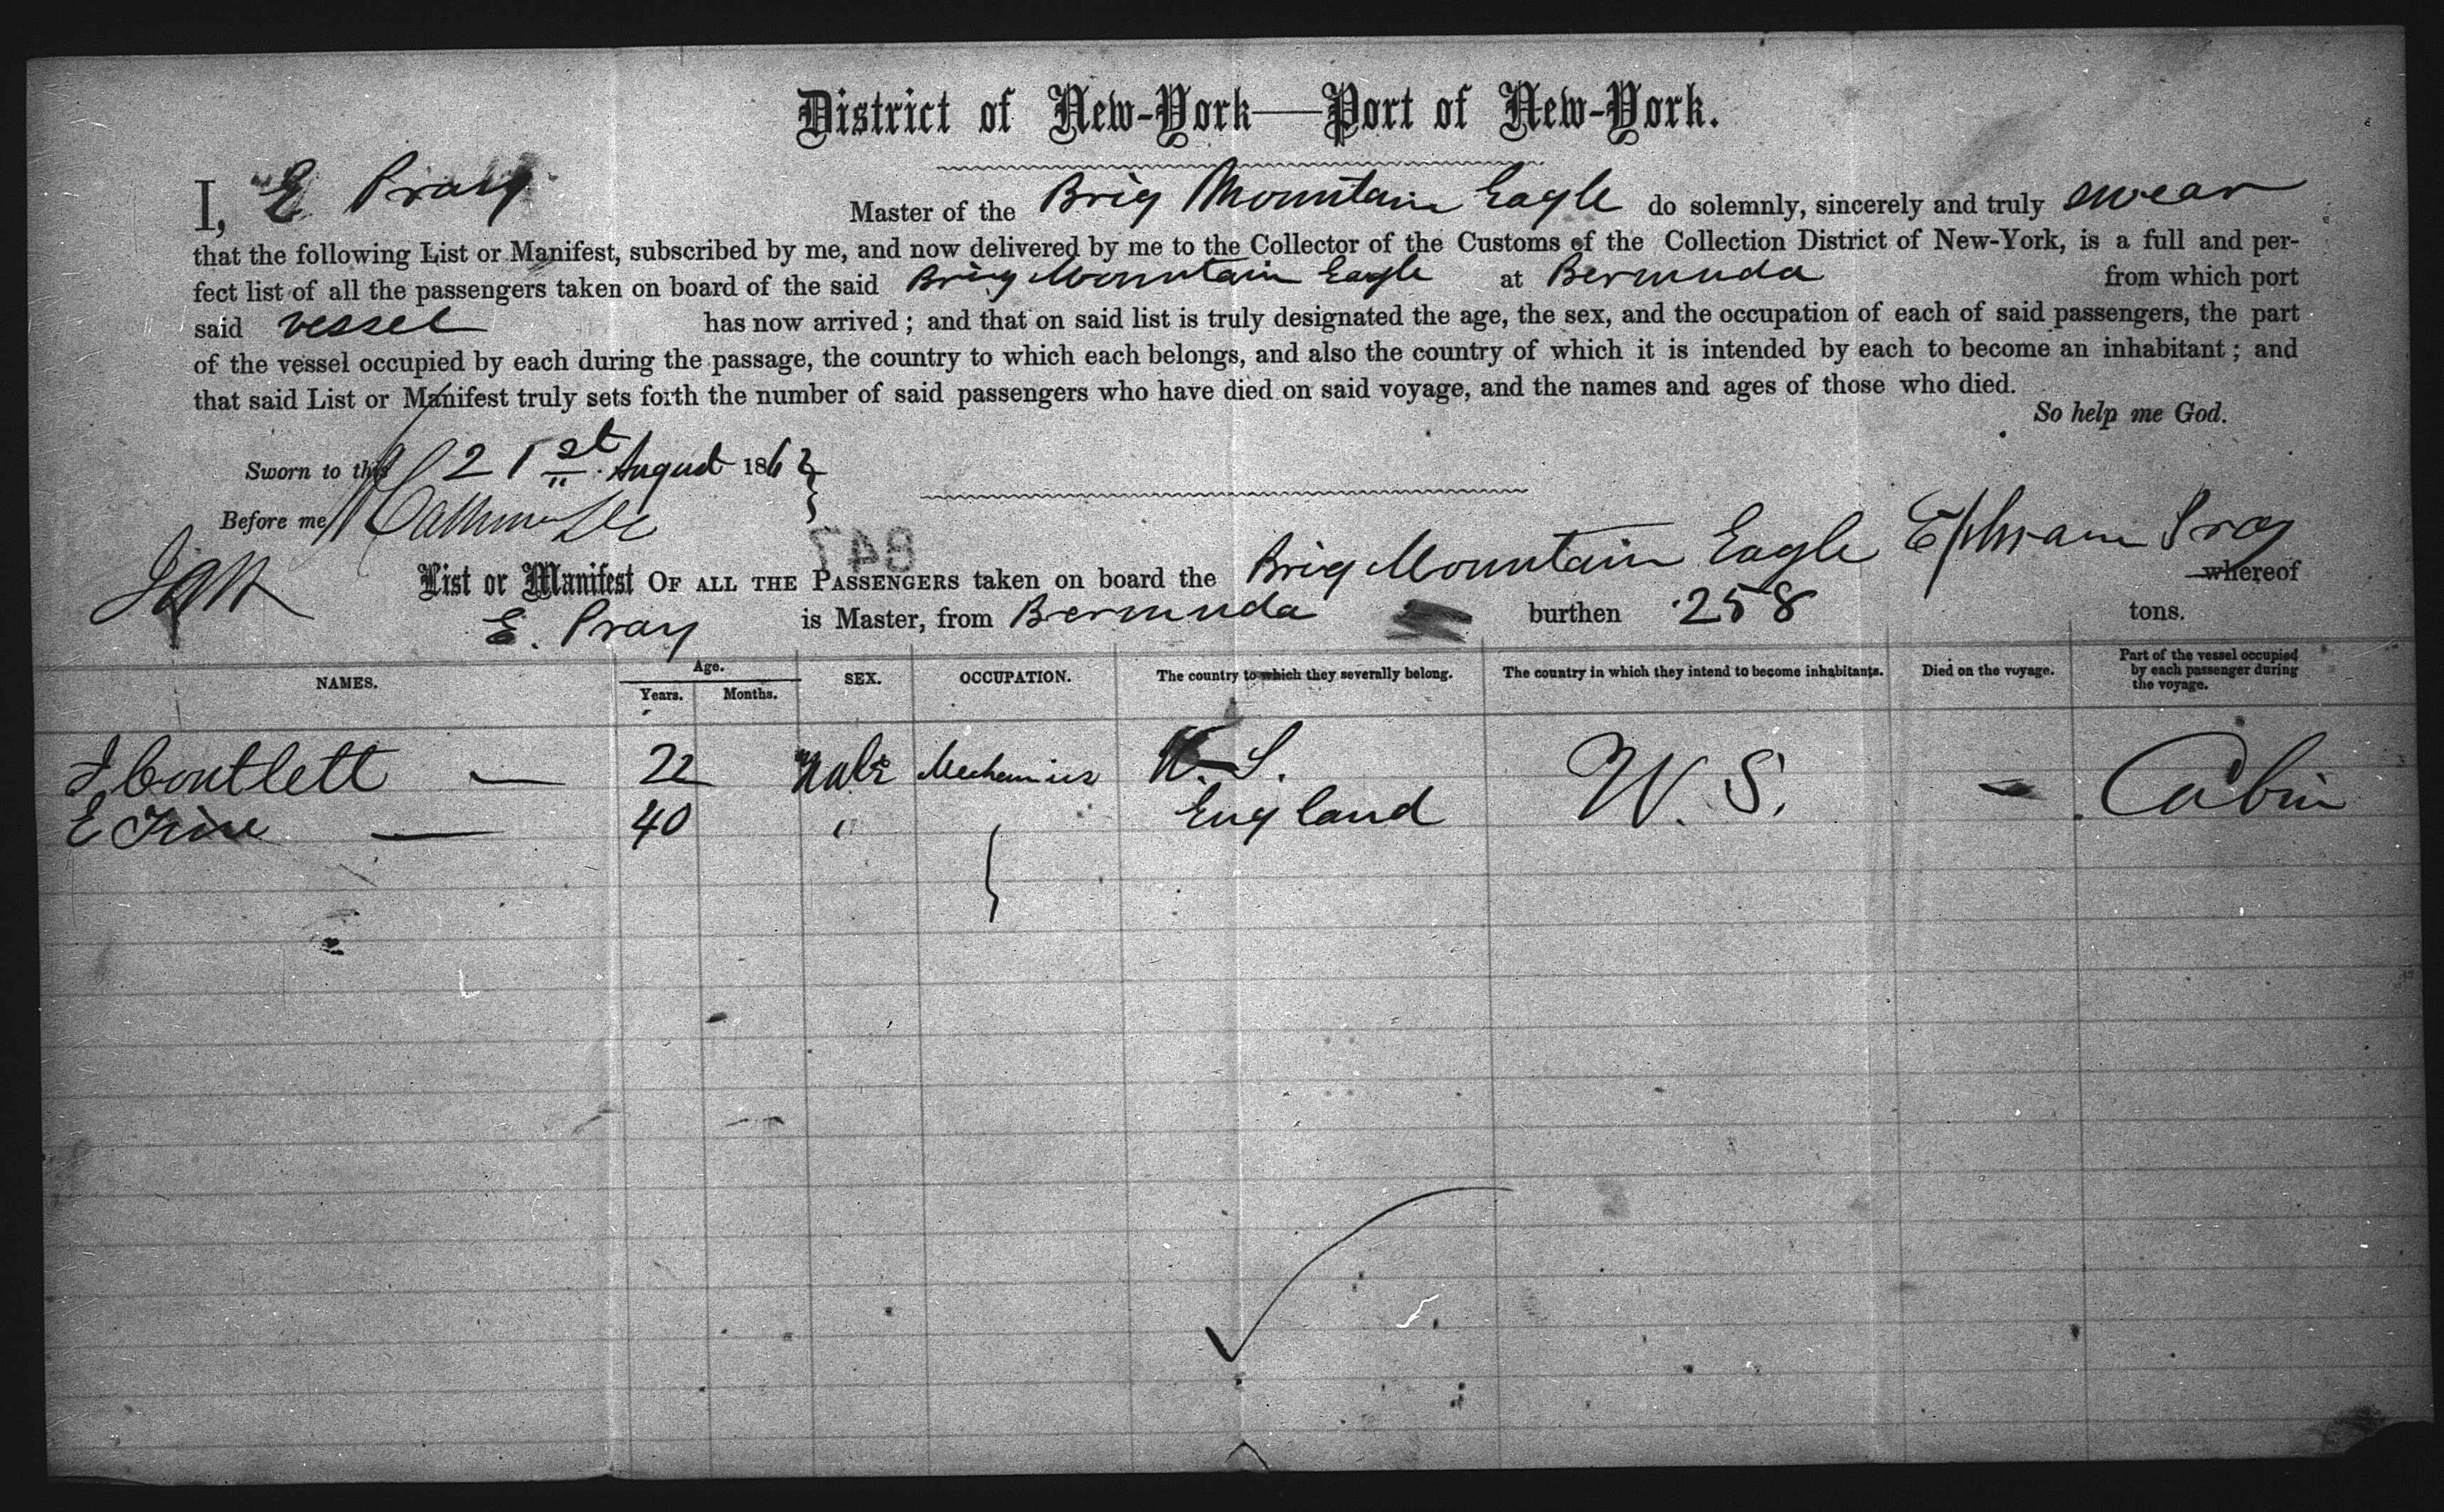 District of New-York—Port of New-York.
I, E Pray Master of the Brig Mountain Eagle do solemnly, sincerely and truly swear
that the following List or Manifest, subscribed by me, and now delivered by me to the Collector of the Customs of the Collection District of New-York, is a full and per-
fect list of all the passengers taken on board of the said Brig Mountain Eagle at Bermuda from which port
said vessel has now arrived; and that on said list is truly designated the age, the sex, and the occupation of each of said passengers, the part
of the vessel occupied by each during the passage, the country to which each belongs, and also the country of which it is intended by each to become an inhabitant; and
that said List or Manifest truly sets forth the number of said passengers who have died on said voyage, and the names and ages of those who died.
So help me God.
Sworn to this 21st August 186
Before me
847
Ephraim Pray
List or Manifest OF ALL THE PASSENGERS taken on board the Brig Mountain Eagle whereof
E. Pray is Master, from Bermuda burthen 258 tons.
NAMES. Age. Years. Months. SEX. OCCUPATION. The country to which they severally belong. The country in which they intend to become inhabitants. Died on the voyage. Part of the vessel occupied by each passenger during the voyage.
22 Male Mechanics U.S. U.S. Cabin
E 40 " England